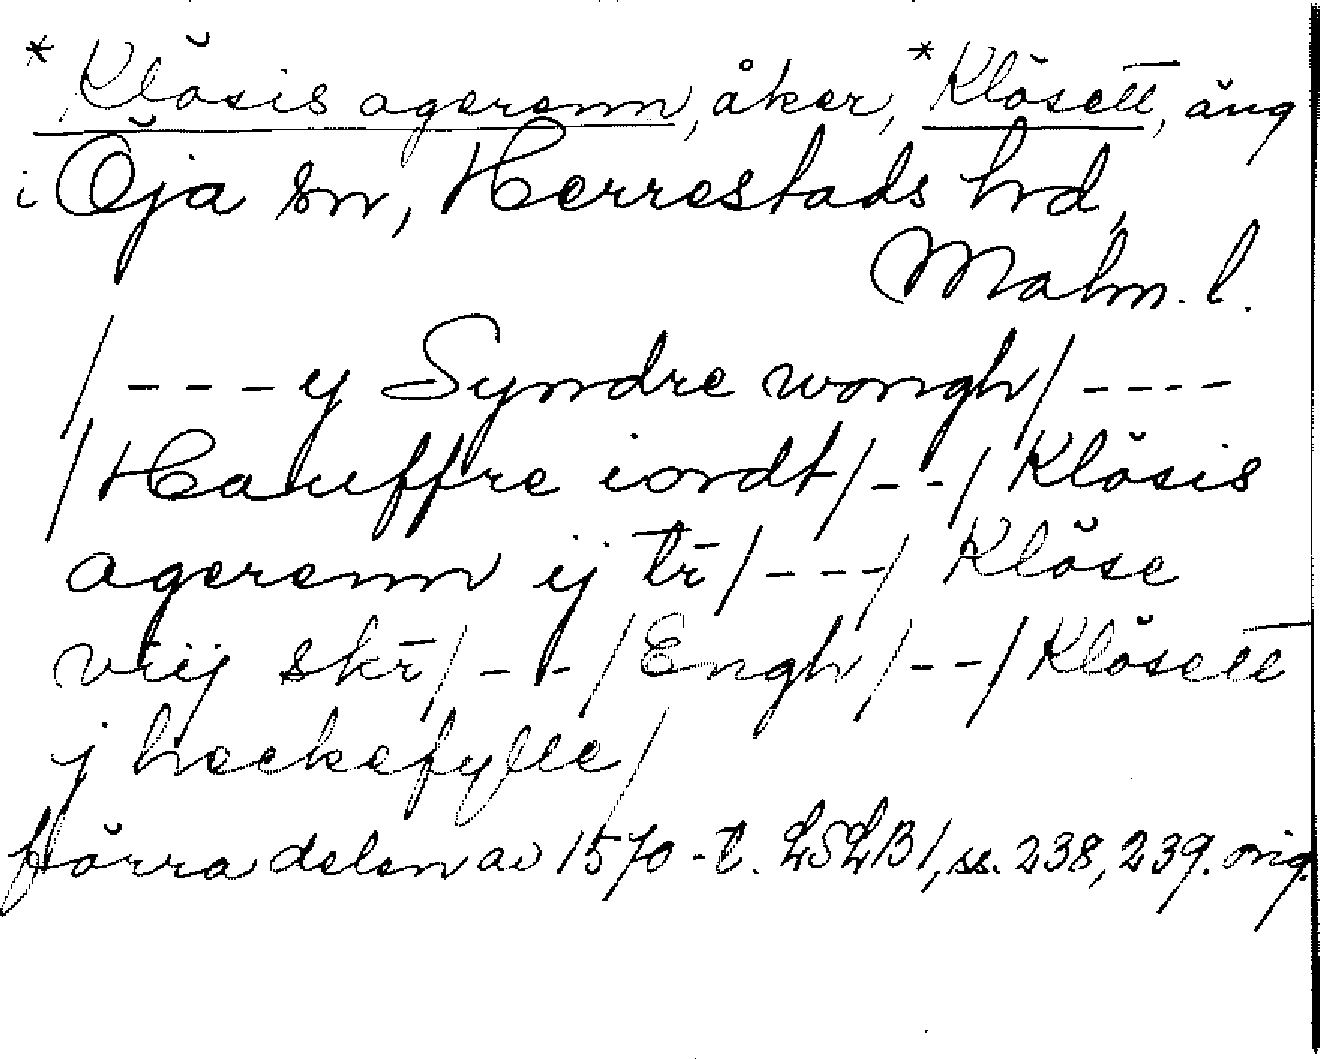 *Klösis agerenn, åker, *Klösett, äng
i Öja sn, Herrestads hrd,
Malm. l.
/ - - - y Syndre wongh / - - - -
/ Hauffre iordt / - - / Klösis
agerenn ij tr̄ / - - - / Klöse
viij skr̄ / - - - / Engh / - - / Klösett
j heckefylle /
förra delen av 1570-t. LSLB1, ss. 238, 239. orig.